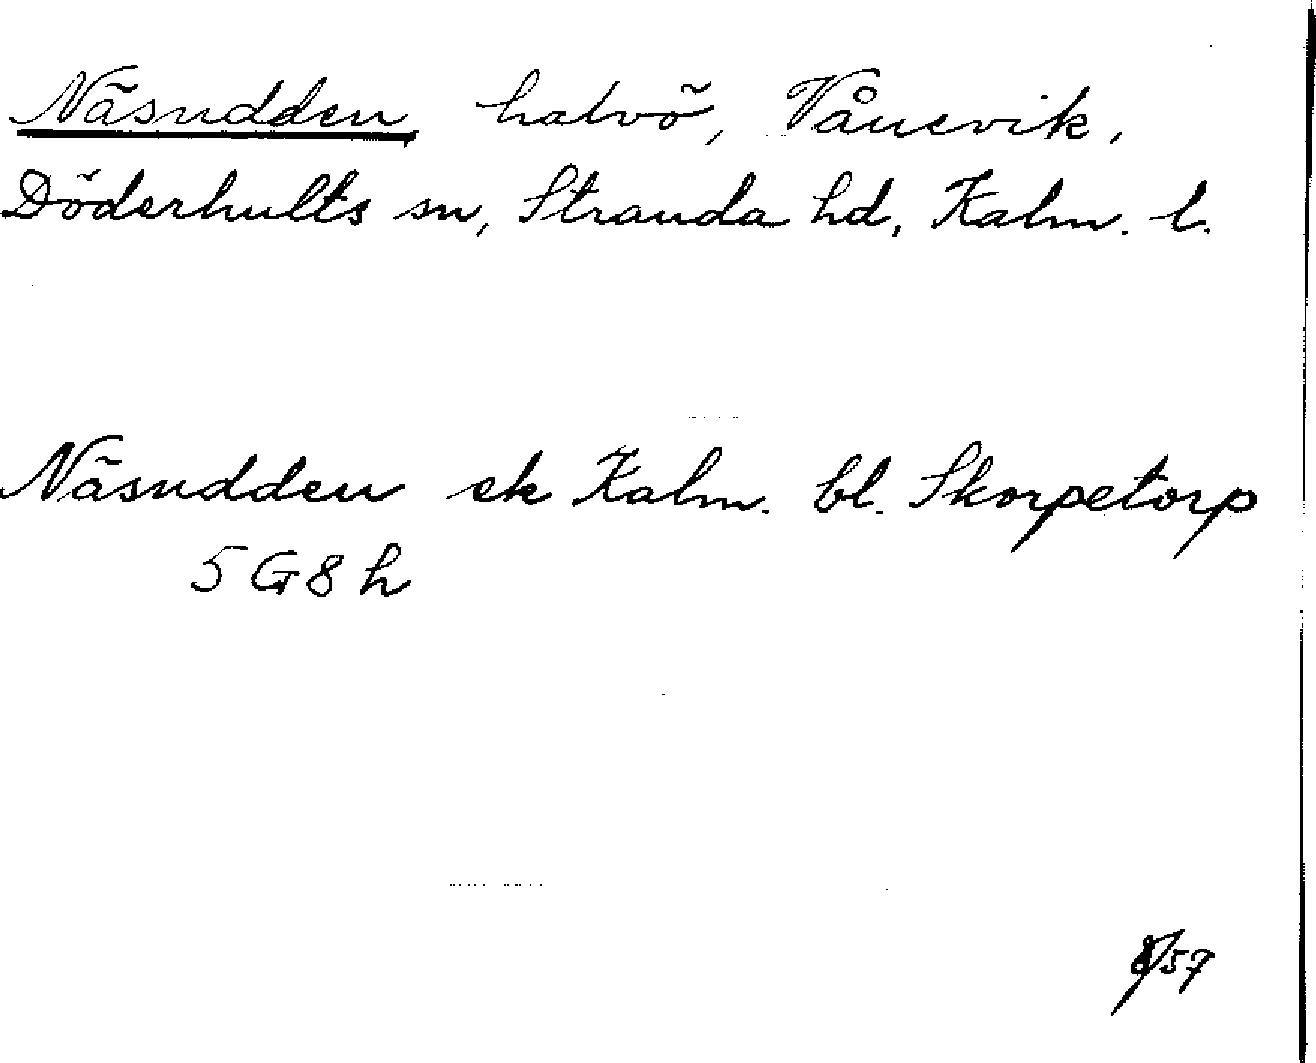 Näsudden halvö, Vånevik,
Döderhults sn, Stranda hd, Kalm. l.
Näsudden ek Kalm. bl. Skorpetorp
5G8h
/57